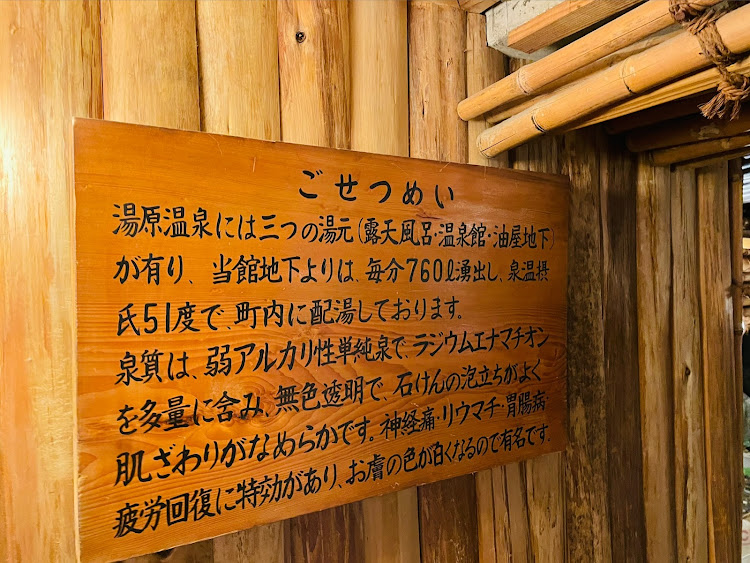 ごせつめい
湯原温泉には三つの湯元(露天風呂・温泉館・油屋地下)
が有り、当館地下よりは、毎分760ℓ湧出し、泉温摂
氏51度で、町内に配湯しております。
泉質は、弱アルカリ性単純泉で、ラジウムエナマチオン
を多量に含み、無色透明で、石けんの泡立ちがよく
肌ざわりがなめらかです。神経痛・リウマチ・胃腸病・
疲労回復に特効があり、お膚の色が白くなるので有名です。